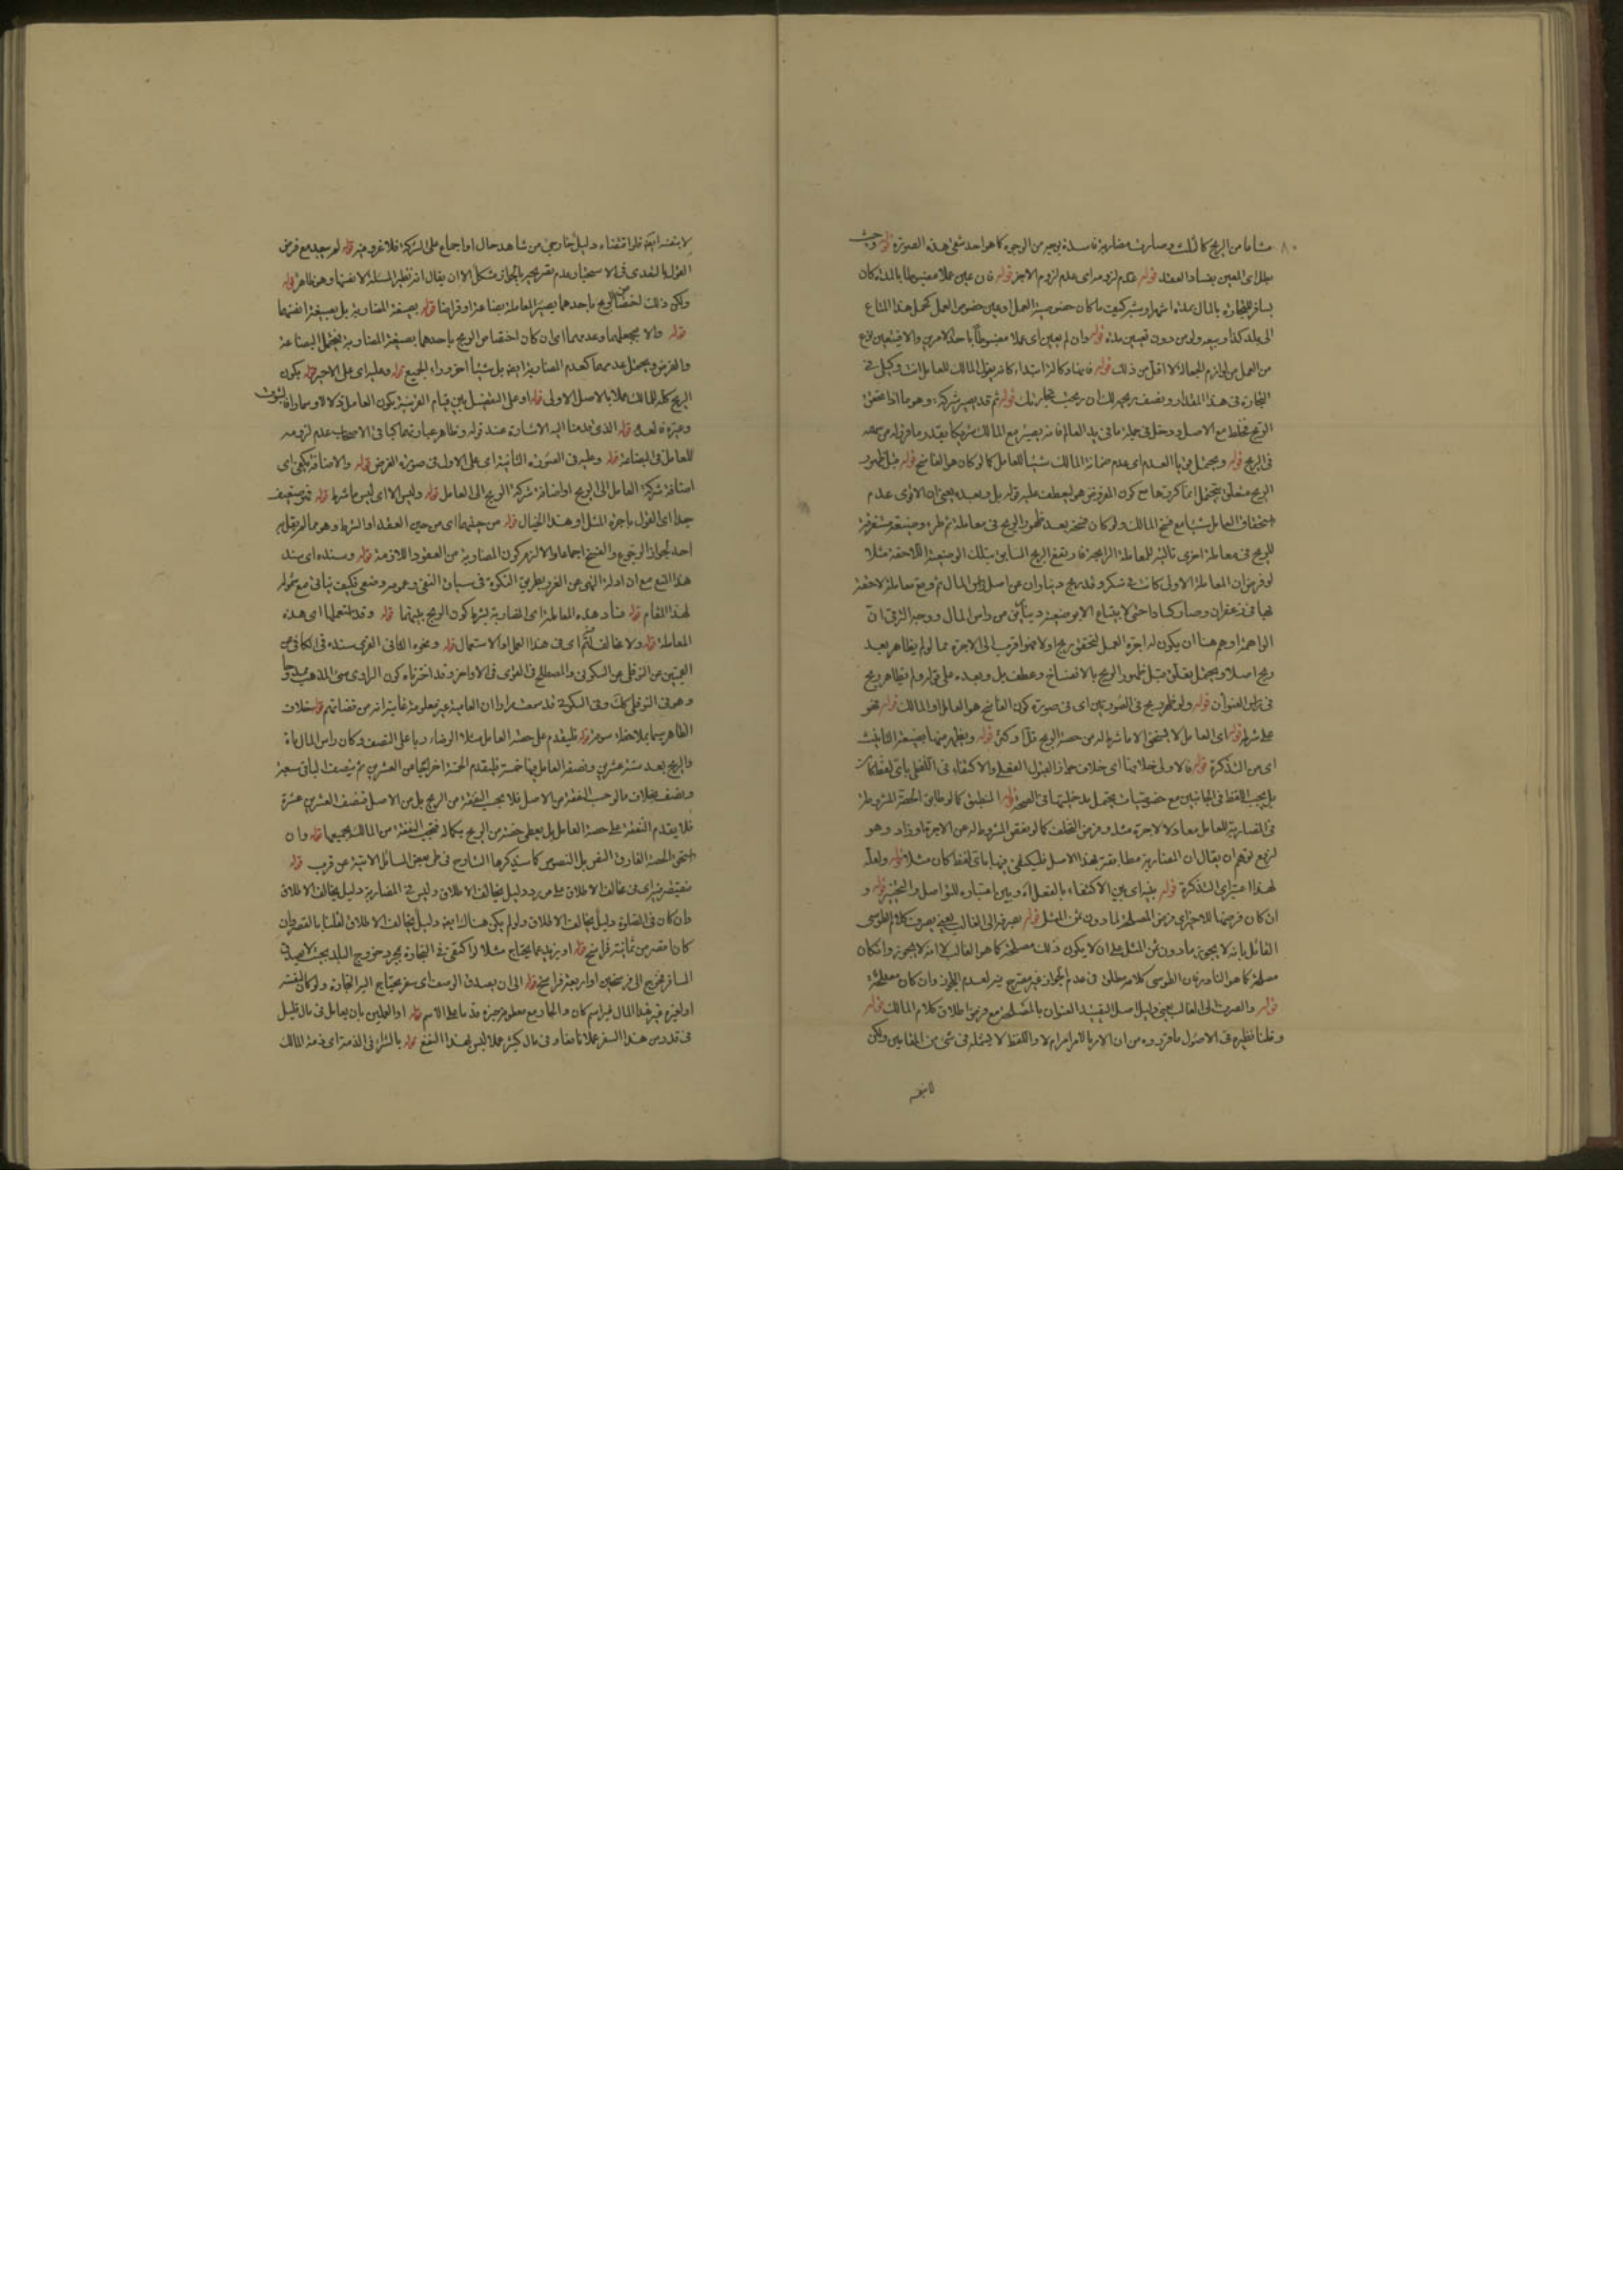 مشاعا من الربح كالثلث وصارت مضاربة فاسدة بوجه من الوجوه كما هو احد شقى هذه الصورة قوله وحيث
بطل اى المعين بفساد العقد قوله عدم لزومه اى عدم لزوم الاجر قوله فان عين عملا مضبوطا بالمدة كان
يسافر للتجارة بالمال مدة اشهر او يشتر كيف ما كان خصوصية العمل او عين خصوص العمل كحمل هذا المتاع
الى بلد كذا وبيعه ولو من دون تعيين مدة قوله وان لم يعين اى عملا مضبوطا باحد الامرين والا فتعيين نوع
من العمل من لوازم الجعالة لا اقل من ذلك قوله ابتداء كانه يقول المالك للعامل انت وكيلى فى
التجارة فى هذا المقدار ونصف ربحه لك ان ربحت تجارتك قوله ثم قد يصير شركة وهو ما اذا تحقق
الربح فخلط مع الاصل ودخل فى جملة ما فى يد العامل فانه يصير مع المالك شريكا بقدر ما قرر له من سهمه
فى الربح قوله ويحتمل قويا العدم اى عدم ضمانة المالك شيئا للعامل كما لو كان هو الفاسخ قوله قبل ظهور
الربح متعلق بتحتمل
استحقاق العامل شيئا مع فسخ المالك ولو كان فسخه بعد ظهور الربح فى معاملة ثم طرء وضيعة مستغرقة
للربح فى معاملة اخرى تالية للمعاملة الرابحة فارتفع الربح السابق بتلك الوضيعة اللاحقة مثلا
لو فرض ان المعاملة الاولى كانت فى سكر وقد ربح دينارا عن اصل راس المال ثم وقع معاملة لاحقة
لها فى زعفران وصار كسادا حتى لا يبتاع الا بوضيعة دينارين من راس المال ووجه الترقى ان
الواهمة اوهم هنا ان يكون له اجرة العمل لتحقق ربح اولا فهو اقرب الى الاجرة مما لو لم يظاهر بعد
ربح اصلا ويحتمل تعلق قبل ظهور الربح بالانفساخ وعطف بل وبعده على قوله ولم يظاهر ربح
فى راس العنوان قوله ولو ظهر ربح فى الصورتين اى فى صورة كون الفاسخ هو العامل او المالك قوله فهو
على شرطه قوله اى العامل لا يستحق الا ما شرط له من حصة الربح قل او كثر قوله ويظهر منها بصيغة التانيث
اى من التذكرة قوله فالاولى خلافهما اى خلاف جواز القبول الفعلى والاكتفاء فى اللفظ باى لفظ كانت
بل يجب اللفظ فى الجانبين مع خصوصيات يحتمل مدخليتها فى الصحة قوله المنطبق كما لو طابق الحصة المشروطة
فى المضاربة للعامل معادلا لاجرة مثله وفرض التخلف كما لو نقص المشروط له عن الاجرة او زاد وهو
لرفع توهم ان يقال ان المضاربة مطابقة لهذا الاصل فليكتفى فيها باى لفظ كان مثلا قوله ولعله
لهذا اعتبر اى التذكرة قوله بينه اى بين الاكتفاء بالفعل
ان كان فرضها للاخر اى فرض المصلحة لما دون ثمن المثل قوله بصرفه الى الغالب يعنى بصرف كلام الطوسى
القائل بانه لا يجوز بما دون ثمن المثل على ان لا يكون ذلك مصلحة كما هو الغالب لا انه لا يجوز وان كان
مصلحة كما هو النادر فان الطوسى كلامه مطلق فى عدم الجواز غير مصرح فيه لعدم الجواز وان كان مصلحة
قوله والصرف الى الغالب يعنى دليل اصل التقييد العنوان بالمصلحة مع فرض اطلاق كلام المالك قوله
وقلنا نظيره فى الاصول ما قرروه من ان الامر بالامر امر ام لا واللفظ لا يشمله فى شئ من المقامين ولكن
لا بنفسه
لا بنفسه ايضا فلو اقتضاه دليل خارجى من شاهد حال او اجماع على الشركة فلا غرو فيه قوله لم يبعد مع فرض
القول بالتعدى فى الاستحباب وعدم تقريحهم بالجواز مشكل الا ان يقال انه نظير المسئلة لا نفسها وهو ظاهر قوله
ولكن ذلك اختصاص الربح باحدهما يصير المعاملة بضاعة او قراضا قوله بصيغة المضاربة بل بصيغة انفسهما
قوله والا بجعلهما وعدمهما اى ان كان اختصاص الربح باحدهما بصيغة المضاربة فيحتمل البضاعة
والقرض ويحتمل عدمهما كعدم المضاربة ايضا بل شيئا اخر وراء الجميع قوله وعليه اى على الاخير قوله يكون
الربح كله للمالك عملا بالاصل الاولى قوله او على التفصيل بين قيام القرينة بكون العامل دلالا وسمارا فالثبوت
وغيره فالعدم قوله الذى قدمنا اليه الاشارة عند قوله وظاهر عبارتهما كما فى الاصحاب عدم لزومه
للعامل فى البضاعة قوله وعليه فى الصورة الثانية اى على الاول فى صورة القرض قوله والاضافة يكفى اى
اضافة شركة العامل الى الربح او اضافة شركة الربح الى العامل قوله وليس الا اى ليس ما شرط قوله فهو ضعيف
جدا اى القول باجرة المثل او هذا الخيال قوله من حينهما اى من حين العقد او الشرط وهو مما لم يقل به
احد لجواز الرجوع والفسخ اجماعا والا لزم كون المضاربة من العقود اللازمة قوله وسنده اى سند
هذا المنع مع ان ادلة النهى عن الغرر بطريق النكرة فى سياق النفى وعمومه وضعى فكيف تنافى مع شموله
لهذا المقام قوله فساد هذه المعاملة اى المضاربة بشرط كون الربح بينهما قوله وقد استعملها اى هذه
المعاملة قوله ولا مخالف ثم اى فى هذا العمل او الاستعمال قوله ونحوه الثانى القوى سنده فى الكافى عن
القمى عن النوفلى عن السكونى والمصطلح فى القوى فى الاواخر وقد اخترناه كون الراوى سئ المذهب ممدوحا
وهو فى النوفلى كك وفى السكونى قد سمعت مرارا ان العامية غير معلومة غايته انه من قضاتهم قوله خلاف
الظاهر سيما بملاحظة سوقه قوله فليقدم على حصة العامل مثلا لو ضاربا على النصف وكان راس المال مائة
والربح بعد سنة عشرين ونصفه العامل فيها خمسة فليقدم الخمسة اخراجا من العشرين ثم ينصف الباقى سبعة
ونصف بخلاف ما لو حسب النفقة من الاصل فلا يجب النفقة من الربح بل من الاصل فنصف العشرين عشرة
فلا يقدم النفقة على حصة العامل بل يعطى خمسة من الربح بكماله فتجب النفقة من المالك بجميعها قوله وان
استحق الحصة الفارق النص بل النصوص كما سيذكرها الشارح فى طى بعض المسائل الاتية عن قريب قوله
فيقتصر فيه اى فى مخالف الاطلاق على مورد دليل يخالف الاطلاق وليس فى المضاربة دليل يخالف الاطلاق
وان كان فى الصلوة دليلا يخالف الاطلاق ولو لم يكن هناك ايضا دليلا يخالف الاطلاق لقلنا بالقصر وان
كان اقصر من ثمانية فراسخ قوله او يزيد عما يحتاج مثلا لو اكتفى فى التجارة بمجرد خروج البلد بحيث لا يصدق
السفر فخرج الى فرسخين او اربعة فراسخ قوله الى ان يصدق الوصف اى سفر يحتاج اليه التجارة ولو كان لنفسه
او لغيره غير هذا المال غير اسم كان والجار مع معلومه خبره قدما على الاسم قوله او العملين بان يعامل فى مال قليل
فى قدر من هذا السفر عملا نافعا وفى مال كثير عملا ليس لهذا النفع قوله بالشراء فى الذمة اى ذمة المالك